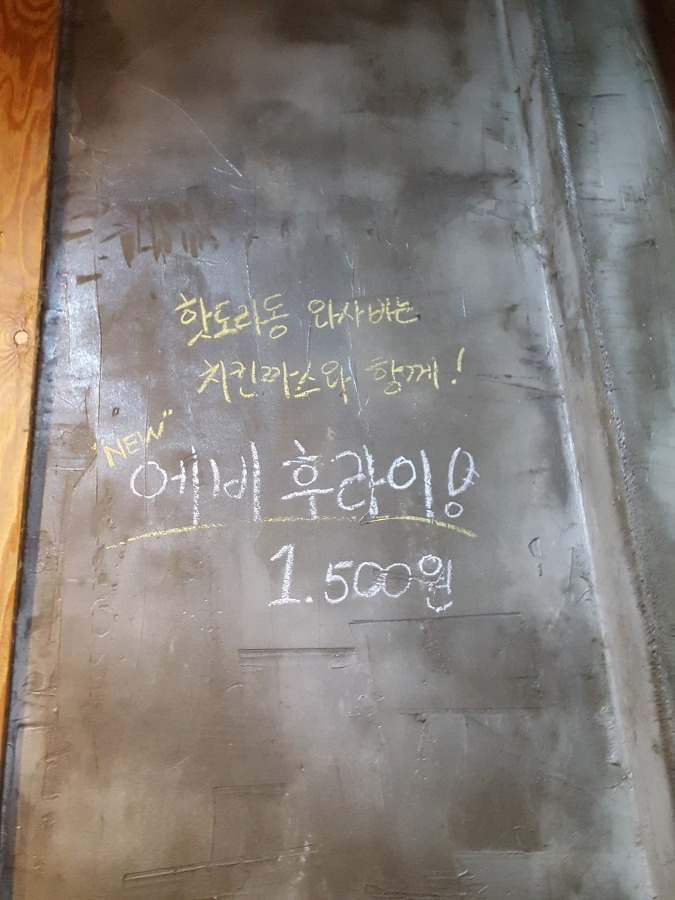 핫도리동 와사비는
치킨까스와 함께!
"NEW"
에비 후라이!
1.500원